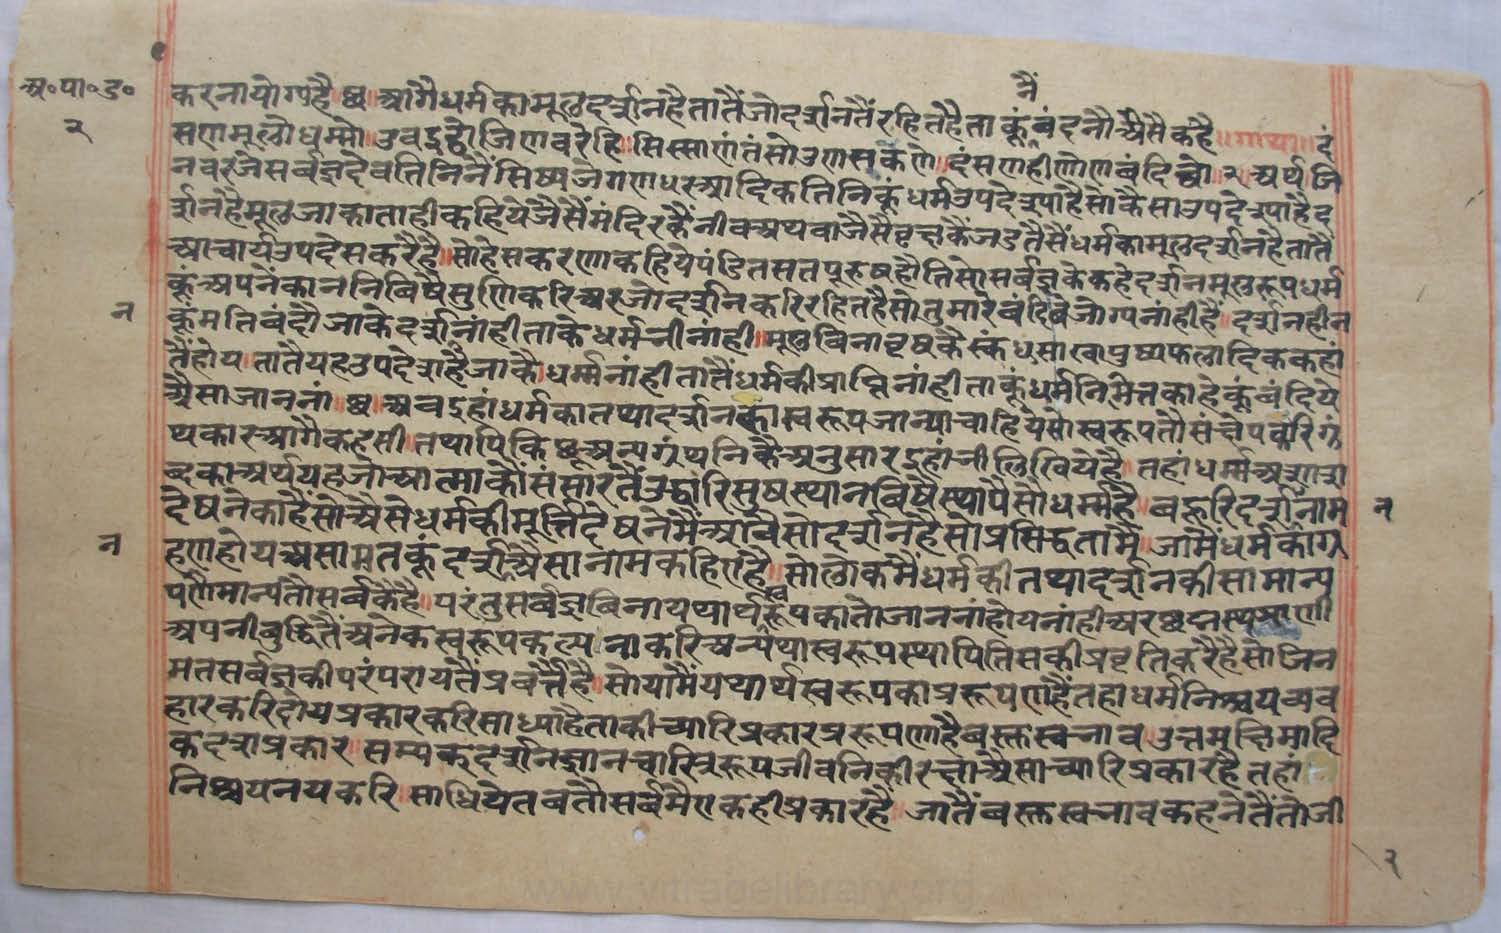 अ॰पा॰उ॰
२
करनायोग्यहै॥छ॥आगैधर्मकामूलदर्शनहैतातैंजोदर्शनतैंरहितहैताकूंबंदनांनैंअैसैकहै॥गाथा॥दं
सणमूलोधम्मो।उवइठ्ठोजिणवरेहिं॥सिस्साणं।तंसोउणसकण्णे।दंसणहीणोणबंदिव्वो॥२॥अर्थ॥जि
नवरजेसर्बज्ञदेवतिनिनैंसिष्यजेगणधरआदिकतिनिकूंधर्मउपदेश्याहैसोकैसाउपदेश्याहैद
र्शनहैमूलजाकाताहीकहियेजैसैंमंदिरकैंनीवअथवाजैसैंवृक्षकैंजडतैसैंधर्मकामूलदर्शनहैतातैं
आचार्यउपदेसकरैहै॥सोहेसकरणाकहियेपंडितसतपुरुषहौतिसोसर्बज्ञकेकहेदर्शनमूलरूपधर्म
कूंअपनैंकाननिबिषैसुणिकरिअरजोदर्शनकरिरहितहैसोतुमारैबंदिबेजोग्यनांहीहैं॥दर्शनहीन
न
कूंमतिबंदौजाकेदर्शनांहीताकेधर्मभीनांही॥मूलबिनावृषकेस्कंधसाखापुष्पफलादिककहां
तैंहोय॥तातैंयहउपदेशहैजाकैधर्म्मनांहीतातैंधर्मकीप्राप्तिनांहीताकूंधर्मनिमेत्तकाहेकूंबंदिये
अैसाजाननां॥छ॥अबइहांधर्मकातथादर्शनकास्वरूपजान्याचाहियेसोस्वरूपतौसंक्षेपकरिग्रं
थकारआगैकहसी।तथापिकिछूअन्यग्रंथनिकैअनुसारइहांभीलिखियेहै॥तहांधर्म्मअैसाश
ब्दकाअर्थयहजोआत्माकौंसंसारतैंउद्धारिसुषस्थानबिषैस्थापैसोधर्म्महै॥बहुरिदर्शनाम
न
देषनेकाहैंसोअैसेधर्मकीमूर्त्तिदेषनेमैंआवैसोदर्शनहैसोप्रसिद्धतामैं॥जामैंधर्मकाग्र
न
हणहोयअसामतकूंदर्शअैसानामकहिएहै॥सोलोकमैंधर्मकीतथादर्शनकीसामान्य
पणैंमान्यतौसर्बकैहै॥परंतुसर्बज्ञबिनायथार्थस्वरूपकातोजाननांहोयनांहीअरछद्मस्थप्राणी
अपनीबुद्धितैंअनेकस्वरूपकल्पनाकरिअन्यथास्वरूपस्थापितिसकीप्रवृतिकरैहैसोजिन
मतसर्बज्ञकीपरंपरायतैंप्रवर्त्तैहै॥सोयामैंयथार्थस्वरूपकाप्ररूपणहैंतहांधर्मनिश्चयव्यव
हारकरिदोयप्रकारकरिसाध्याहैताकीच्यारिप्रकारप्ररूपणाहैबस्तुस्वभाव॥उत्तमक्षिमादि
कदशप्रकार॥सम्यक्दर्शनज्ञानचारित्ररूपजीवनिकीरक्षाअैसाच्यारिप्रकारहैतहां
निश्चयनयकरि॥साधियेतबतौसर्बमैंएकहीप्रकारहै॥जातैंबस्तुस्वभावकहनेतैंतोजी
२
www.vitragelibrary.org